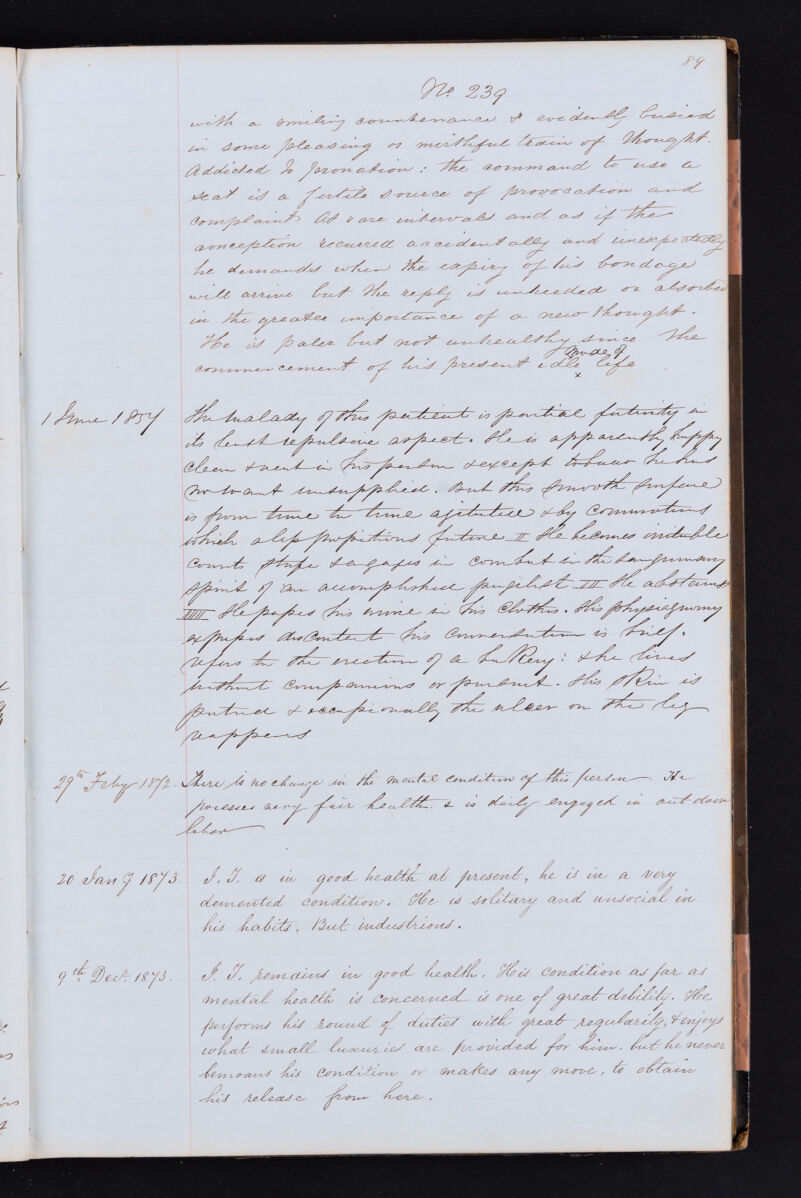 89
No. 239
with a smiling countenance & evidently busied
in some pleasing or mirthful train of thought.
Addicted to pronation: the command to use a
seat is a fertile source of provocation and
complaint. At rare intervals and as if the
conception recurred accidentally and unexpectedly
he demands when the expiry of his bondage
will arrive but the reply is unheeded or absorbed
in the greater importance of a new thought.
He is paler but not unhealthy since the
mode of
commencement of his present idle x life
1 June 1857 The malady of this patient is partial fatuity in
its least repulsive aspect. He is apparently happy
clean & neat in his person & except tobacco he has
no want unsupplied. But this smooth surface
is from time to time agitated & by commotions
which are propitious future II He becomes irritable
courts strife & engages in combat in the sanguinary
spirit of an accomplished pugilist III He abstains
IIIII He passes his urine in his clothes. His physiognomy
expresses discontent his conversation is brief.
refers to the erection of a bakery: & he lives
without companions or pursuit. His skin is
putrid & occasionally the ulcer on the leg
reappears
29th Feby 1872. There is no change in the mental condition of this person He
possesses very fair health. & is daily engaged in out door
labor.
20 Jany 1873. J. T. is in good health at present, he is in a very
demented condition. He is solitary and unsocial in
his habits. But industrious.
9th Decr. 1873. J. T. remains in good health. His condition as far as
mental health is concerned is one of great debility. He
performs his round of duties with great regularity, & enjoys
what small luxuries are provided for him. but he never
bemoans his condition or makes any move, to obtain
his release from here.